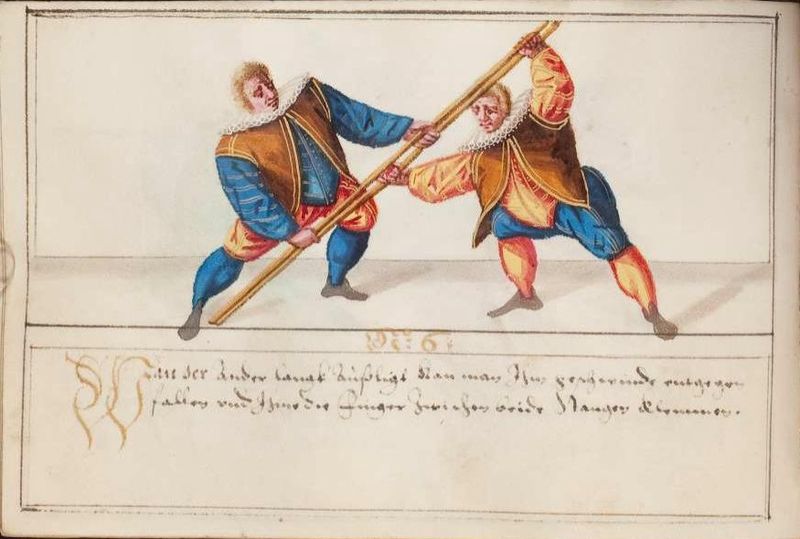 Nro: 6:
Wan der Ander langk Außligt Kan man Ihm geschwinde entgegen
fallen und Ihme die Finger Zwischen beide Stangen Klemmen.